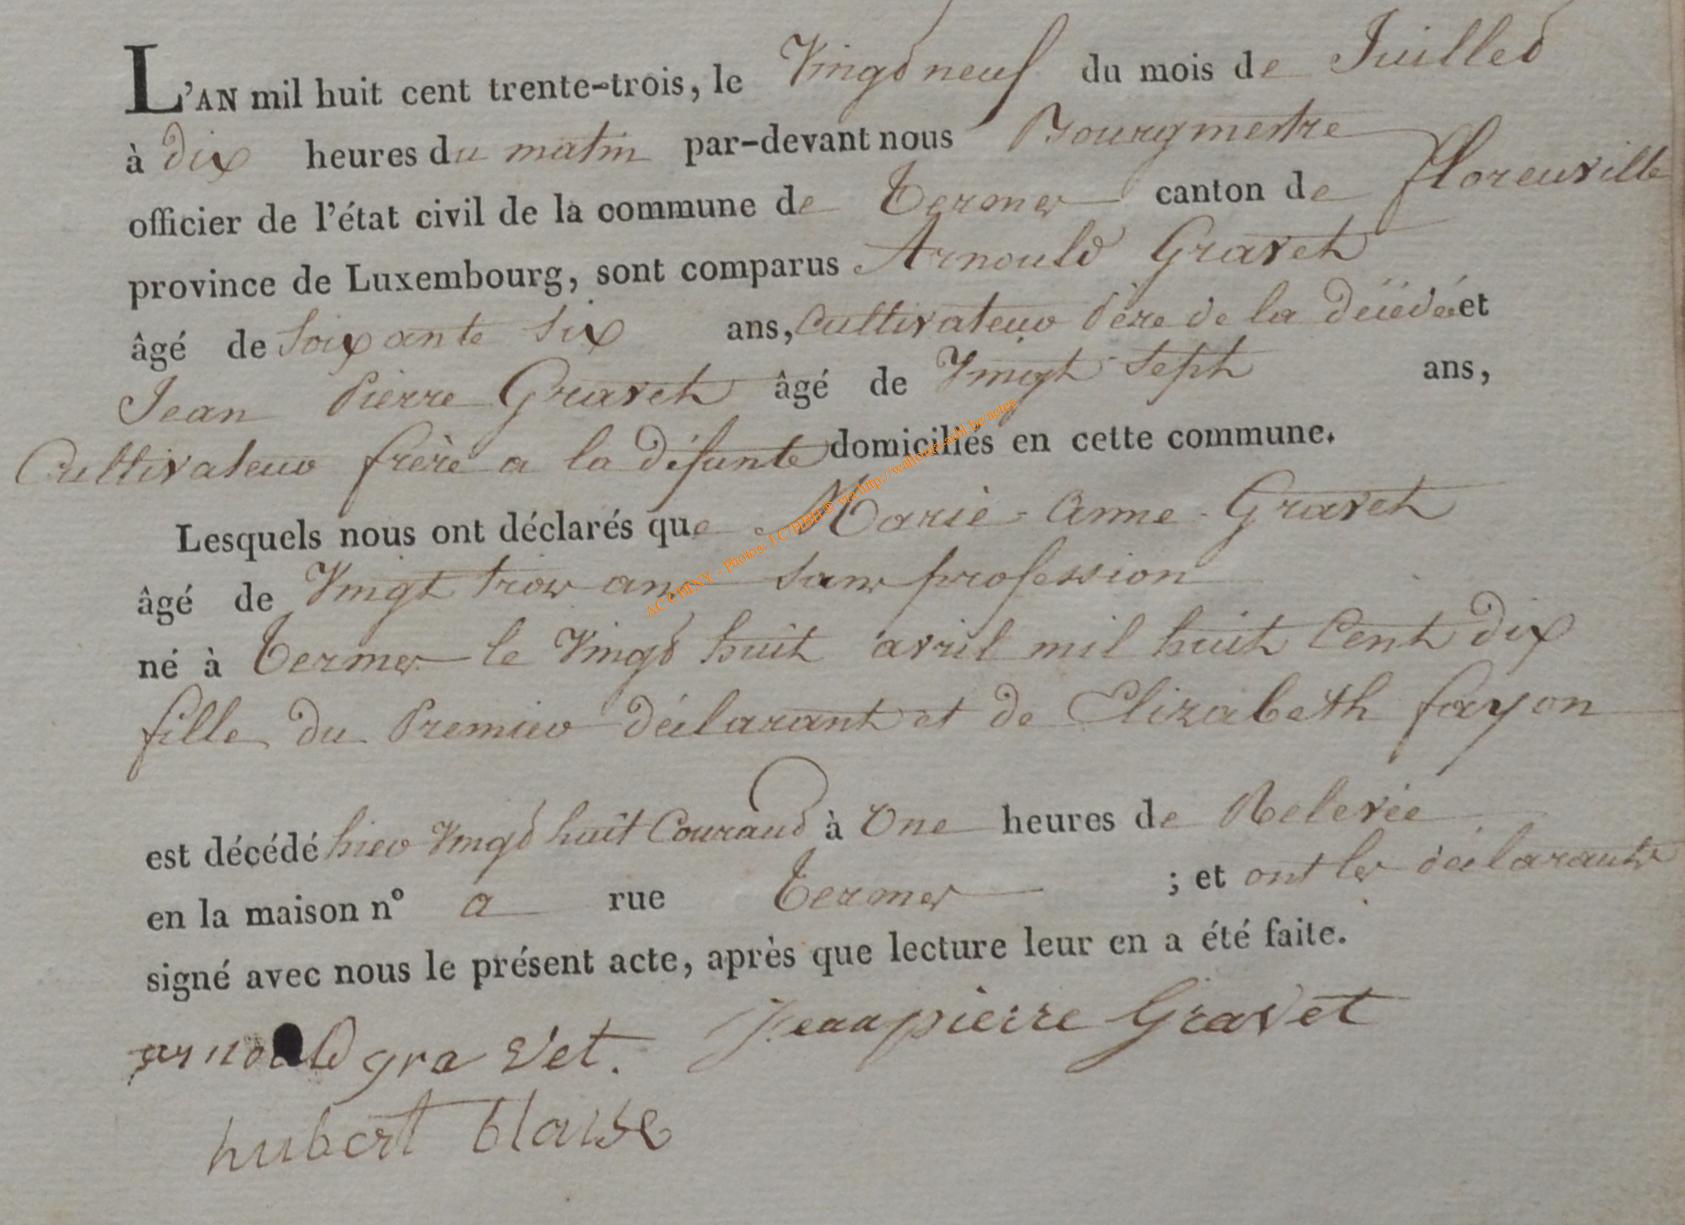 L'AN mil huit cent trente-trois, le Vingt neuf du mois de Juillet
à dix heures du matin par-devant nous Bourgmestre
officier de l'état civil de la commune de Termes canton de florenville
province de Luxembourg, sont comparus Arnould Gravet
âgé de Soixante Six ans, Cultivateur Père de la décédée et
Jean Pierre Gravet âgé de Vingt Sept ans,
Cultivateur frère a la défunte domiciliés en cette commune.
Lesquels nous ont déclarés que Marie-Anne-Gravet
âgé de Vingt trois ans Sans profession
né à Termes le Vingt huit avril mil huit Cent dix
fille du Premier déclarant et de Elizabeth fayon
est décédé hier Vingt huit Courant à Une heures de Relevée
en la maison n° a rue Termes ; et ont les déclarants
signé avec nous le présent acte, après que lecture leur en a été faite.
arnould gravet. Jean pierre Gravet
hubert blaise